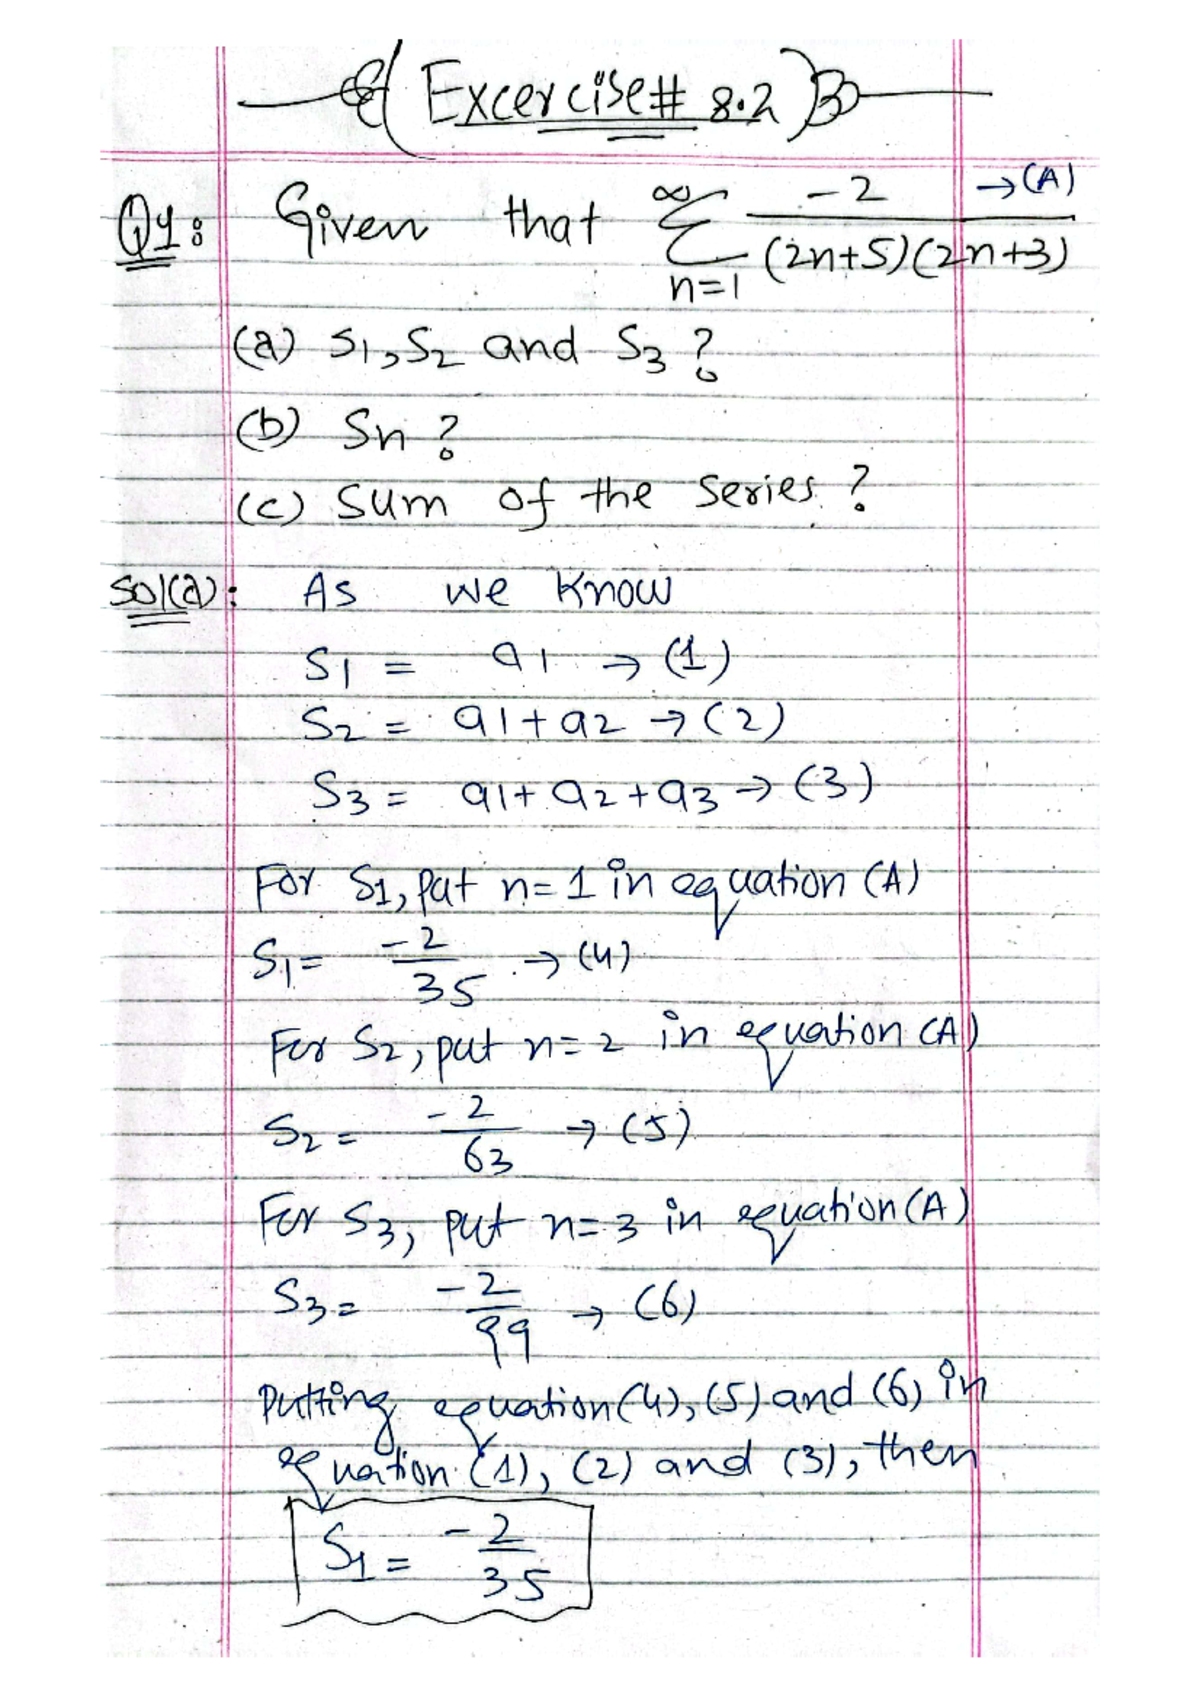 Excercise# 8.2
Q1: Given that ∞ Σ n=1 -2 / (2n+5)(2n+3) → (A)
(a) S1, S2 and S3 ?
(b) Sn ?
(c) Sum of the series ?
Sol(a): As we know
S1 = a1 → (1)
S2 = a1+a2 → (2)
S3 = a1+a2+a3 → (3)
For S1, put n=1 in equation (A)
S1 = -2/35 → (4)
For S2, put n=2 in equation (A)
S2 = -2/63 → (5)
For S3, put n=3 in equation (A)
S3 = -2/99 → (6)
Putting equation (4), (5) and (6) in
equation (1), (2) and (3), then
S1 = -2/35